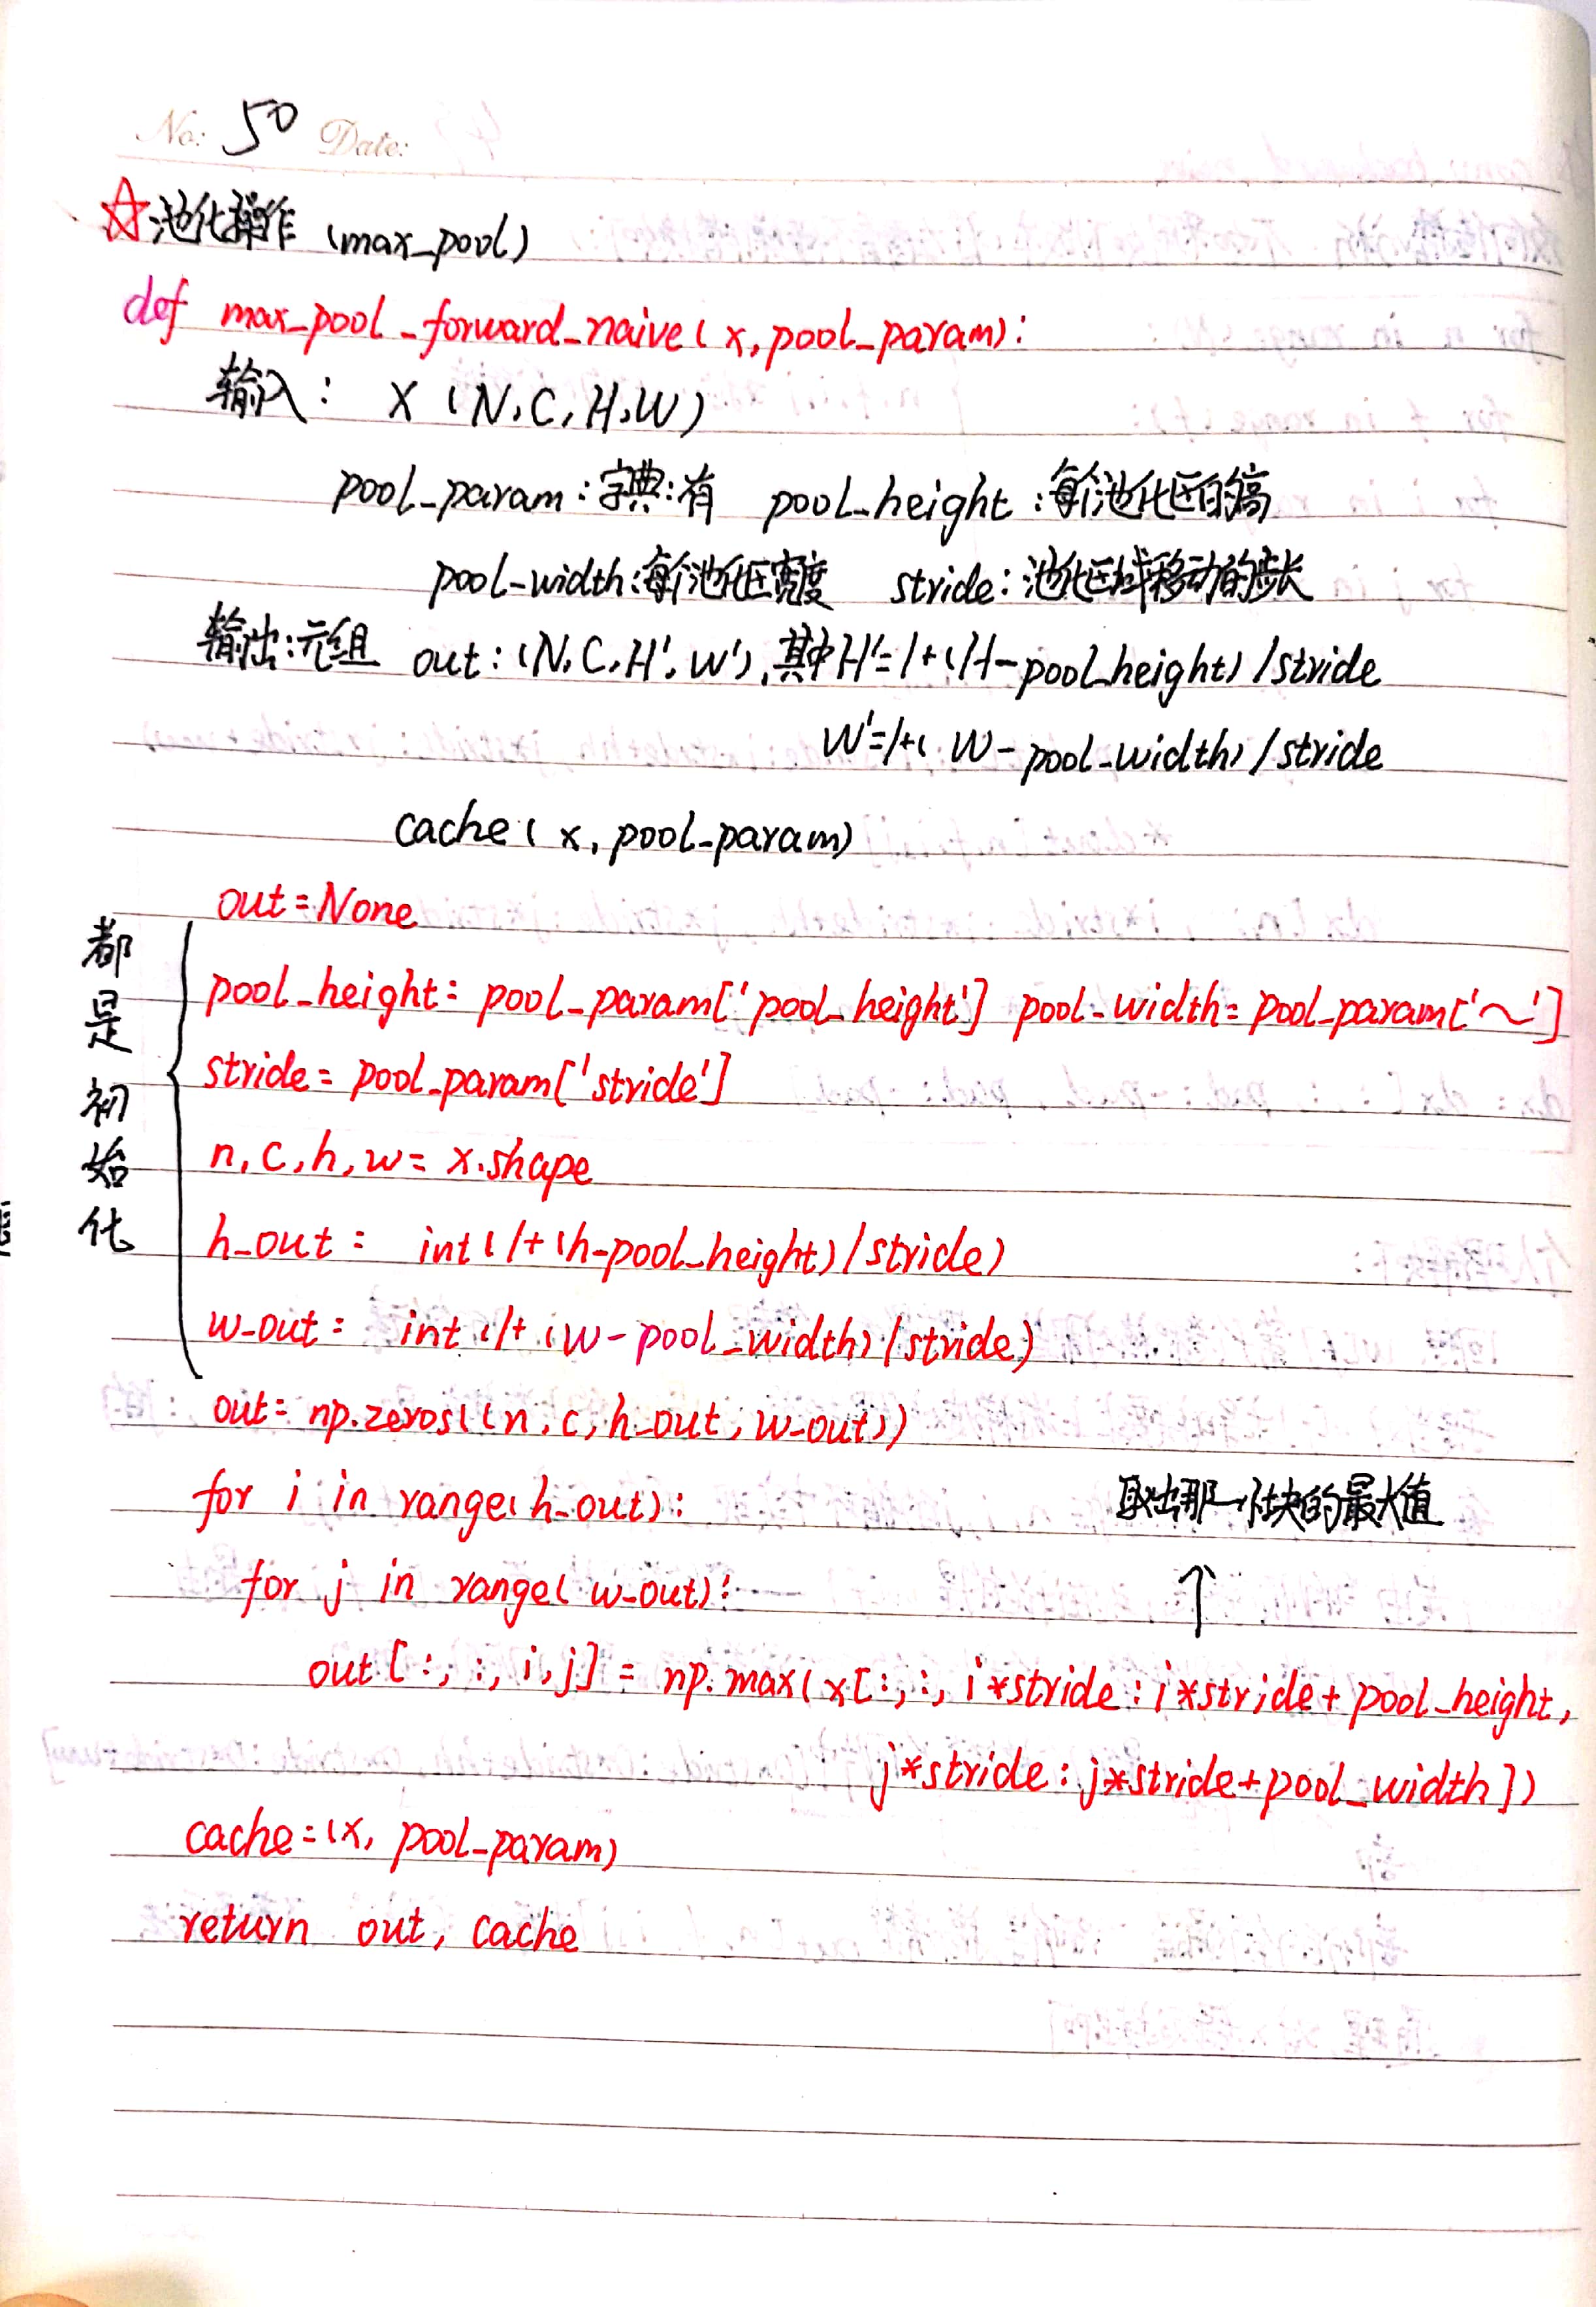 No: 50 Date:
☆池化操作 (max_pool)
def max_pool_forward_naive(x, pool_param):
输入: X (N, C, H, W)
pool_param:字典:有 pool_height:每个池化区的高
pool_width:每个池化区宽度 stride:池化区域移动的步长
输出:元组 out:(N, C, H', W'),其中H'=1+(H-pool_height)/stride
W'=1+(W-pool_width)/stride
cache(x, pool_param)
out=None
都是初始化
pool_height= pool_param['pool_height'] pool_width= pool_param['~']
stride= pool_param['stride']
n, c, h, w= x.shape
h_out= int(1+(h-pool_height)/stride)
w_out= int(1+(w-pool_width)/stride)
out= np.zeros((n, c, h_out, w_out))
for i in range(h_out): 取出那一小块的最大值
for j in range(w_out): ↑
out[:, :, i, j] = np.max(x[:, :, i*stride:i*stride+pool_height,
j*stride:j*stride+pool_width])
cache=(x, pool_param)
return out, cache